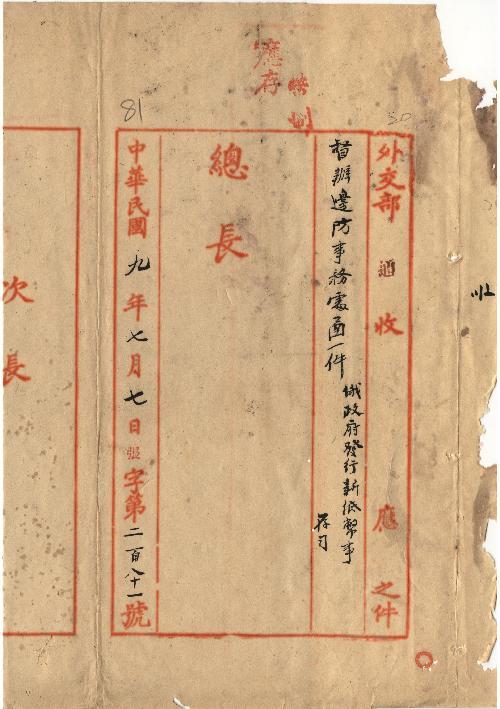 應存
81
30
外交部 收 應 之件
督辦邊防事務處函一件
俄政府發行新紙幣事
存司
總長
中華民國九年七月七日張字第二百八十一號
次長